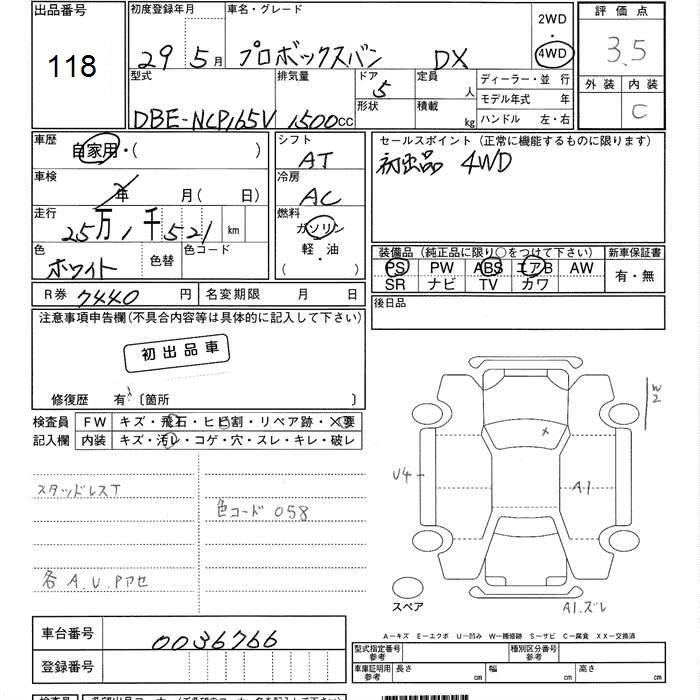 出品番号 初度登録年月 車名・グレード 2WD 4WD 評価点
118 29年 5月 プロボックスバン DX 3.5
型式 排気量 ドア 5 定員 人 ディーラー・並 行 外装 内装
形状 積載 kg モデル年式 年 C
DBE-NCP165V 1500cc ハンドル 左・右
車歴 自家用・( ) シフト AT セールスポイント (正常に機能するものに限ります)
初出品 4WD
車検 年 月(日) 冷房 AC
走行 25万1千521km 燃料 ガソリン 軽・油 ( )
色 ホワイト 色替 色コード 装備品 (純正品に限り○をつけて下さい) 新車保証書
PS PW ABS エアB AW 有・無
SR ナビ TV カワ
R券 7440円 名変期限 月 日 後日品
注意事項申告欄(不具合内容等は具体的に記入して下さい)
初出品車
修復歴 有 〔箇所 〕
検査員 FW キズ・飛石・ヒビ割・リペア跡・X要
記入欄 内装 キズ・汚レ・コゲ・穴・スレ・キレ・破レ
W2
U4 A1
スタッドレスT 色コード 058
各A.U.Pアセ
スペア A1.ズレ
A-キズ E-エクボ U-凹み W-補修跡 S-サビ C-腐食 XX-交換済
車台番号 0036766
型式指定番号 参考 種別区分番号 参考
登録番号 車庫証明用 参考 長さ cm 幅 cm 高さ cm